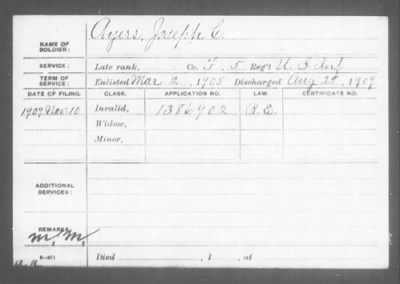 Ayers, Joseph C.
NAME OF SOLDIER:
SERVICE: Late rank, Co. F, 5 Reg't U. S. Inf.
TERM OF SERVICE: Enlisted Mar 2, 1905 Discharged Aug 28, 1909
DATE OF FILING. CLASS. APPLICATION NO. LAW. CERTIFICATE NO.
1909 Nov. 10 Invalid, 1386902 R.E.
Widow,
Minor,
ADDITIONAL SERVICES:
REMARKS:
M.M.
Died , 1 , at